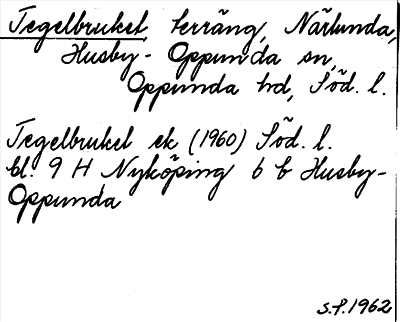 Tegelbruket terräng, Närlunda,
Husby-Oppunda sn,
Oppunda hd, Söd. l.
Tegelbruket ek (1960) Söd. l.
bl. 9 H Nyköping 6 b Husby-
Oppunda
S.P. 1962